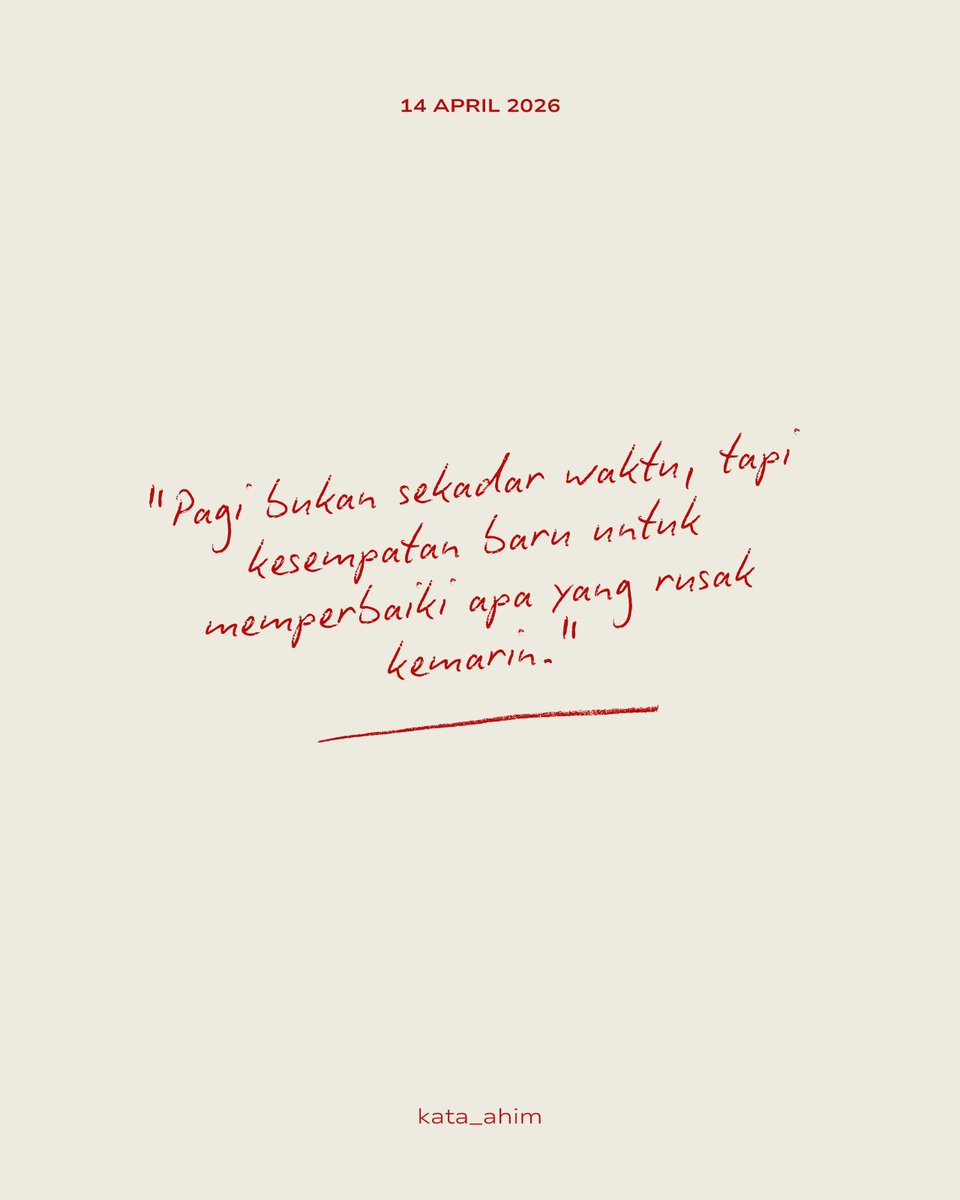 14 APRIL 2026
"Pagi bukan sekadar waktu, tapi
kesempatan baru untuk
memperbaiki apa yang rusak
kemarin."
kata_ahim